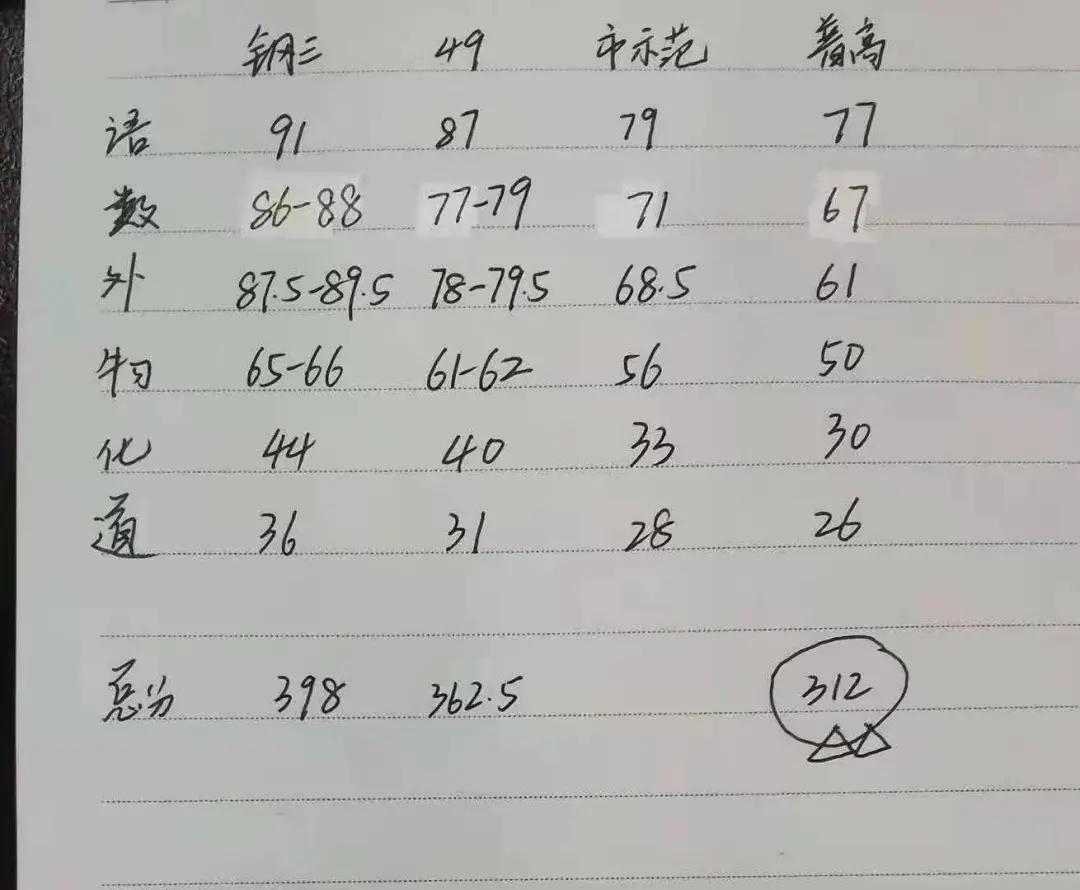 钢三 49 市示范 普高
语 91 87 79 77
数 86-88 77-79 71 67
外 87.5-89.5 78-79.5 68.5 61
物 65-66 61-62 56 50
化 44 40 33 30
道 36 31 28 26
总分 398 362.5 312